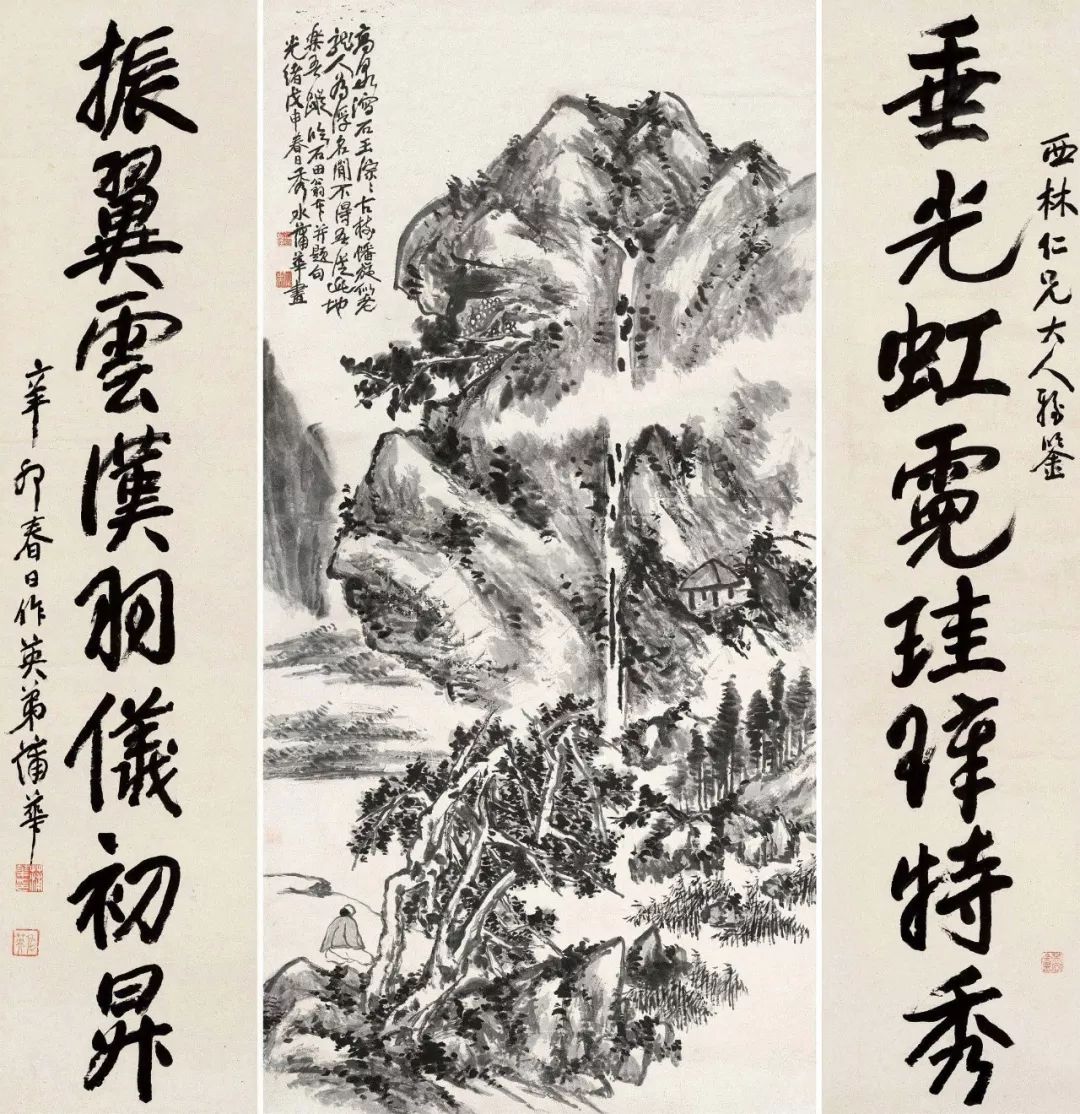 西林仁兄大人雅鑒
垂光虹霓珪璋特秀
高泉瀉石玉淙〻古樹蟠旋似老
龍人為浮名閒不得吾從此地
樂吾蹤臨石田翁本并題句
光緒戊申春日秀水蒲華畫
振翼雲漢羽儀初昇
辛卯春日作英弟蒲華